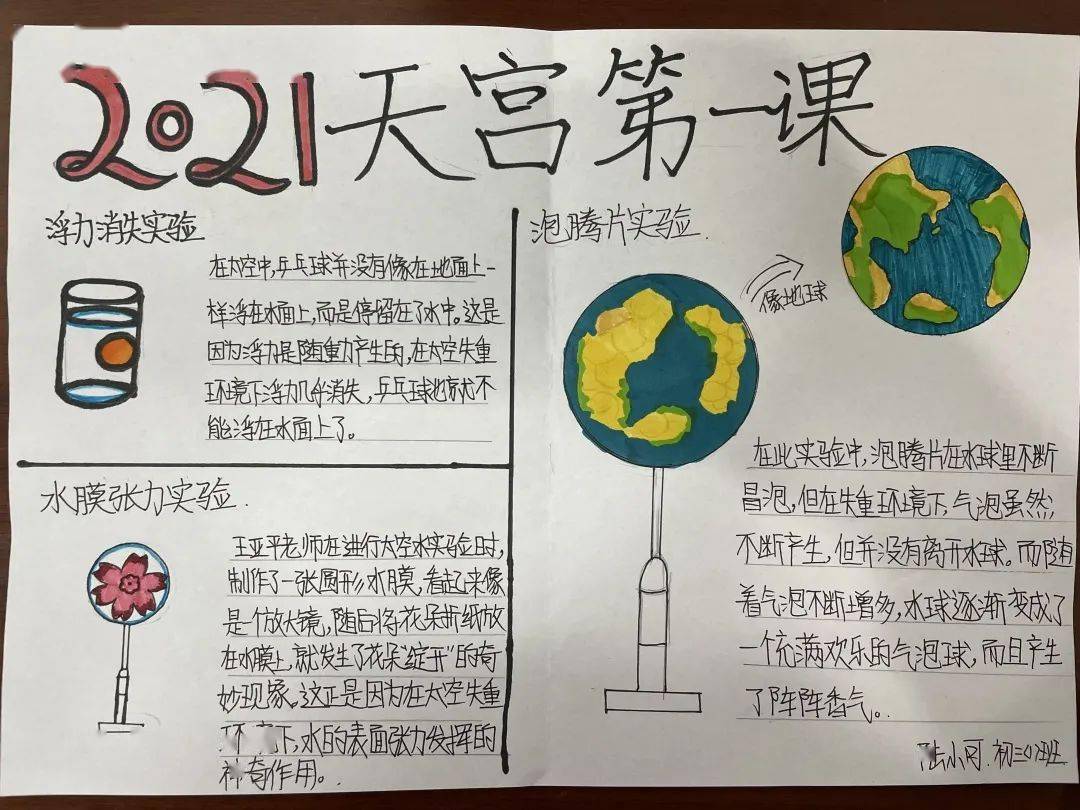 2021天宫第一课
浮力消失实验
在太空中,乒乓球并没有像在地面上一
样浮在水面上,而是停留在了水中。这是
因为浮力是随重力产生的,在太空失重
环境下浮力几乎消失,乒乓球也就不
能浮在水面上了。
水膜张力实验.
王亚平老师在进行太空水实验时,
制作了一张圆形水膜,看起来像
是个放大镜,随后将花朵折纸放
在水膜上,就发生了花朵“绽开”的奇
妙现象。这正是因为在太空失重
环境下,水的表面张力发挥的
神奇作用。
泡腾片实验.
像地球
在此实验中,泡腾片在水球里不断
冒泡,但在失重环境下,气泡虽然
不断产生,但并没有离开水球。而随
着气泡不断增多,水球逐渐变成了
一个充满欢乐的气泡球,而且产生
了阵阵香气。
陆小可.初三